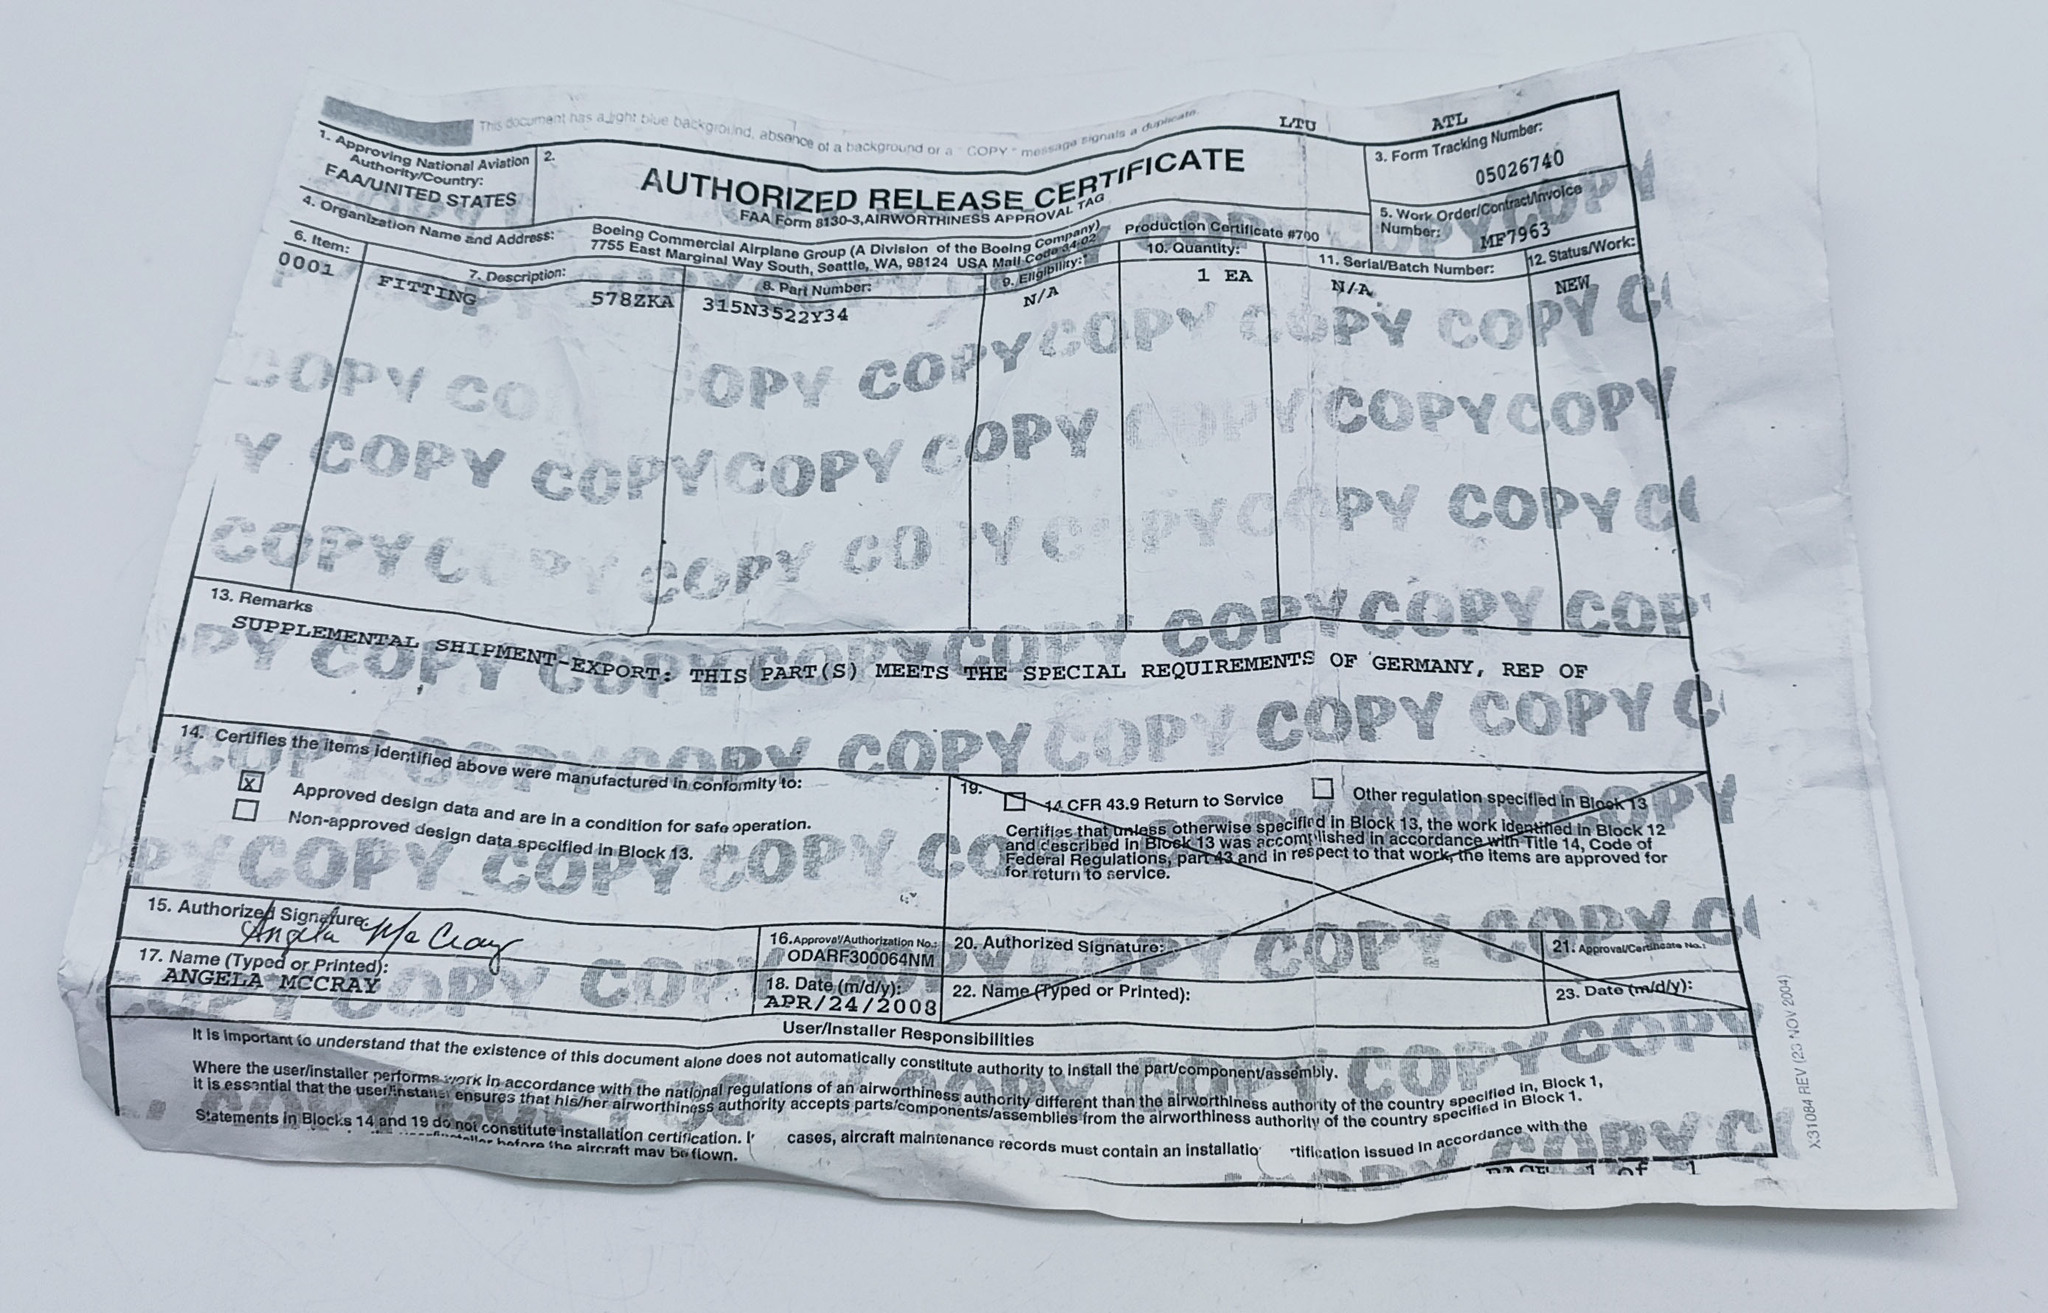 This document has a light blue background, absence of a background or a "COPY" message signals a duplicate.
LTU ATL
1. Approving National Aviation Authority/Country:
FAA/UNITED STATES
2.
AUTHORIZED RELEASE CERTIFICATE
FAA Form 8130-3, AIRWORTHINESS APPROVAL TAG
3. Form Tracking Number:
05026740
4. Organization Name and Address:
Boeing Commercial Airplane Group (A Division of the Boeing Company)
7755 East Marginal Way South, Seattle, WA, 98124 USA Mail Code 34-02
Production Certificate #700
5. Work Order/Contract/Invoice
Number: MF7963
6. Item: 7. Description: 8. Part Number: 9. Eligibility:* 10. Quantity: 11. Serial/Batch Number: 12. Status/Work:
0001 FITTING 578ZKA 315N3522Y34 N/A 1 EA N/A NEW
COPY COPY COPY COPY COPY COPY
13. Remarks
SUPPLEMENTAL SHIPMENT-EXPORT: THIS PART(S) MEETS THE SPECIAL REQUIREMENTS OF GERMANY, REP OF
14. Certifies the items identified above were manufactured in conformity to:
X Approved design data and are in a condition for safe operation.
Non-approved design data specified in Block 13.
19. 14 CFR 43.9 Return to Service Other regulation specified in Block 13
Certifies that unless otherwise specified in Block 13, the work identified in Block 12
and described in Block 13 was accomplished in accordance with Title 14, Code of
Federal Regulations, part 43 and in respect to that work, the items are approved for
for return to service.
15. Authorized Signature:
Angela McCray
16. Approval/Authorization No.:
ODARF300064NM
17. Name (Typed or Printed):
ANGELA MCCRAY
18. Date (m/d/y):
APR/24/2008
20. Authorized Signature:
21. Approval/Certificate No.:
22. Name (Typed or Printed):
23. Date (m/d/y):
User/Installer Responsibilities
It is important to understand that the existence of this document alone does not automatically constitute authority to install the part/component/assembly.
Where the user/installer performs work in accordance with the national regulations of an airworthiness authority different than the airworthiness authority of the country specified in, Block 1,
it is essential that the user/installer ensures that his/her airworthiness authority accepts parts/components/assemblies from the airworthiness authority of the country specified in Block 1.
Statements in Blocks 14 and 19 do not constitute installation certification. cases, aircraft maintenance records must contain an installatio tification issued in accordance with the
before the aircraft may be flown.
PAGE 1 of 1
X31084 REV (23 NOV 2004)